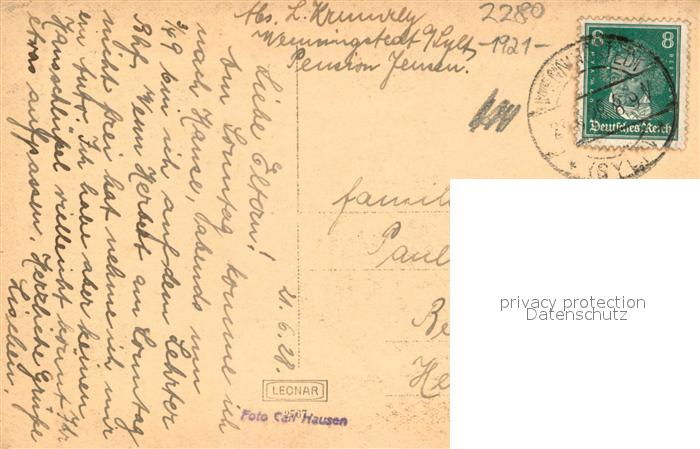 Abs. L.
2280
Wenningstedt a/Sylt
-1921-
Pension Jensen.
8 8
Deutsches Reich
Liebe Eltern!
21.6.28.
Am Sonntag komme ich
nach Hause, Abends um
3/4 9 bin ich auf dem Lehrter
Bhf. Wenn Herbert am Sonntag
nicht frei hat nehme ich mir
ein Auto. Ich habe aber keinen
Hausschlüssel vielleicht könnt Ihr
etwas aufpassen. Herzliche Grüße
Lieschen.
Familie
Paul
Be
He
LEONAR
Foto Carl Hausen
privacy protection
Datenschutz